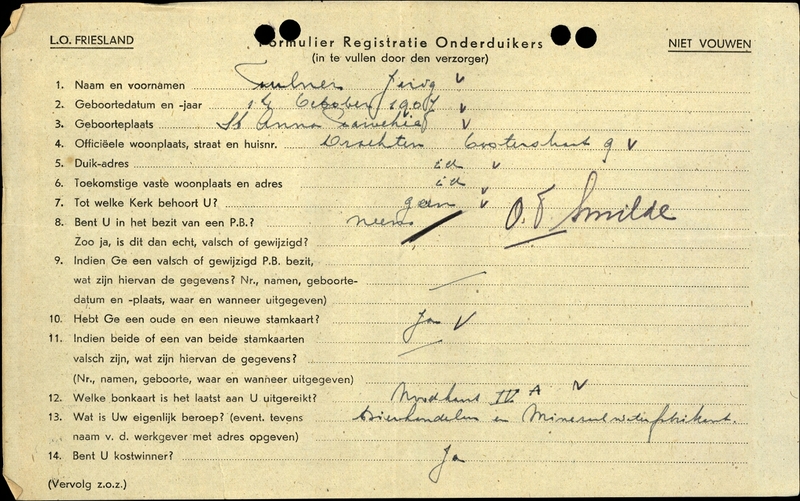 L.O. FRIESLAND
Formulier Registratie Onderduikers
NIET VOUWEN
(in te vullen door den verzorger)
1. Naam en voornamen
2. Geboortedatum en -jaar 14 October 1907
3. Geboorteplaats St Anna
4. Officiëele woonplaats, straat en huisnr. Drachten 9
5. Duik-adres id
6. Toekomstige vaste woonplaats en adres id
7. Tot welke Kerk behoort U? geen
8. Bent U in het bezit van een P.B.? neen O.F. Smilde
Zoo ja, is dit dan echt, valsch of gewijzigd?
9. Indien Ge een valsch of gewijzigd P.B. bezit,
wat zijn hiervan de gegevens? Nr., namen, geboorte-
datum en -plaats, waar en wanneer uitgegeven)
10. Hebt Ge een oude en een nieuwe stamkaart? Ja
11. Indien beide of een van beide stamkaarten
valsch zijn, wat zijn hiervan de gegevens?
(Nr., namen, geboorte, waar en wanneer uitgegeven)
12. Welke bonkaart is het laatst aan U uitgereikt? Noodkaart IV A
13. Wat is Uw eigenlijk beroep? (event. tevens Bierhandelaar en Mineraalwaterfabrikant.
naam v. d. werkgever met adres opgeven)
14. Bent U kostwinner? Ja
(Vervolg z.o.z.)